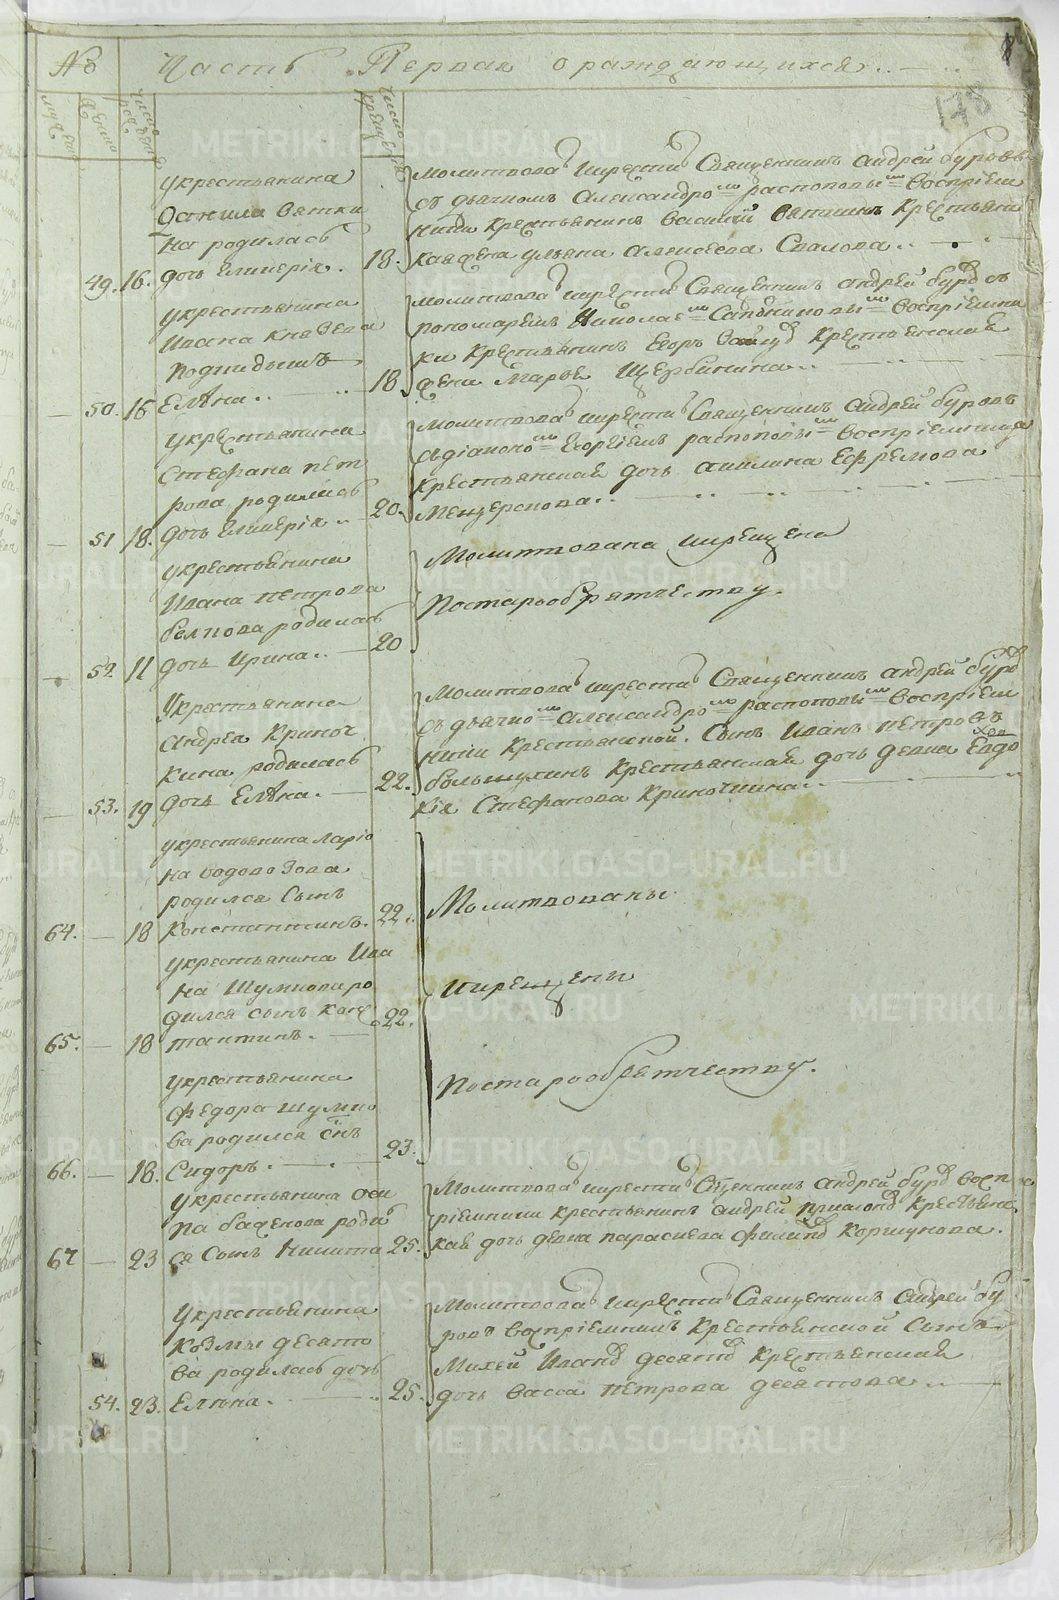 № Часть Первая о раждающихся
178
укрестьянина
Данила вятки
на родилась
49. 16. дочь Гликерiя. 18.
Молитвовалъ икрестилъ Священникъ андрей буровъ
съ дьячкомъ Александромъ распоповымъ воспрiем
ники крестьянинъ василiй вяткинъ крестьян
укрестьянина
Ивана
50. 16 Елѣна 18
молитвовалъ икрестилъ Священникъ андрей буровъ съ
пономаремъ Николаемъ воспрiемни
ки крестьянинъ Егоръ крестьянская
жена Марья Щербинина
укрестьянина
Стефана пет
рова родилась
51 18. дочь Гликерiя 20.
молитвовалъ икрестилъ Священникъ андрей буровъ
сдiакономъ Георгiемъ распоповымъ воспрiемница
крестьянская дочь акилина Ефремова
Мещерскова
укрестьянина
Ивана петрова
родилась
52 11 дочь Ирина 20
Молитвована икрещена
постарообрятчеству.
Укрестьянина
Андрея Криноч
кина родилась
53. 19 дочь Елѣна. 22.
Молитвовалъ икрестилъ Священникъ андрей буровъ
съ дьячкомъ Александромъ распоповымъ воспрiем
ники Крестьянской Сынъ Иванъ петровъ
крестьянская дочь девка Евдо
кiя Стефанова Криночкина
укрестьянина Ларiо
на водово Зова
родился Сынъ
64. 18 Константинъ. 22.
Молитвованы
укрестьянина Ива
на Шумкова ро
дился сынъ конс
65. 18 тантинъ. 22.
икрещены
укрестьянина
Федора шумко
ва родился сынъ
66. 18. Сидоръ. 23.
постарообрятчеству.
укрестьянина оси
па баженова родил
67 23 ся Сынъ Никита 25.
Молитвовалъ икрестилъ Священникъ андрей буровъ восп
рiемники крестьянинъ андрей крестьянс
кая дочь девка параскева Корнукова.
укрестьянина
Козмы десято
ва родилась дочь
54. 23. Елѣна. 25.
Молитвовалъ икрестилъ Священникъ Андрей бу
ровъ воспрiемникъ крестьянской Сынъ
Михей Ивановъ десятовъ крестьянская
дочь васса петрова десятова